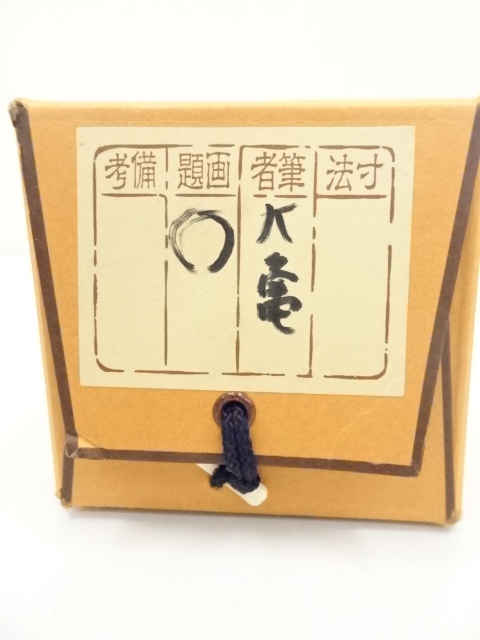 寸法
筆者
大亀
画題
備考